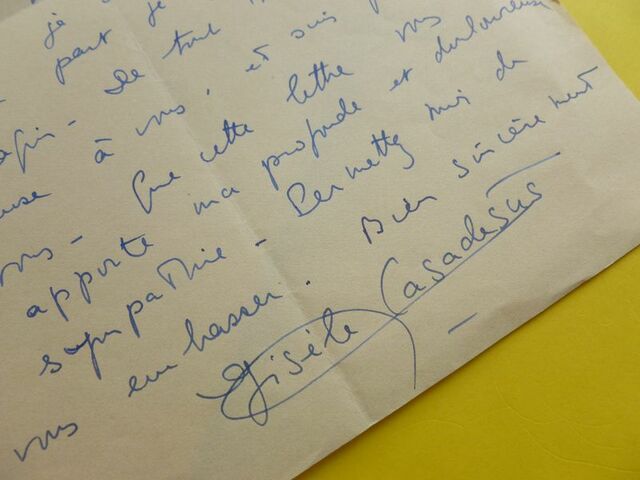 je
part je
- De tout
à vous, et suis
vous - Que cette lettre vous
apporte ma profonde et douloureuse
sympathie - Permettez moi de
vous embrasser. Bien sincèrement
Gisèle Casadesus